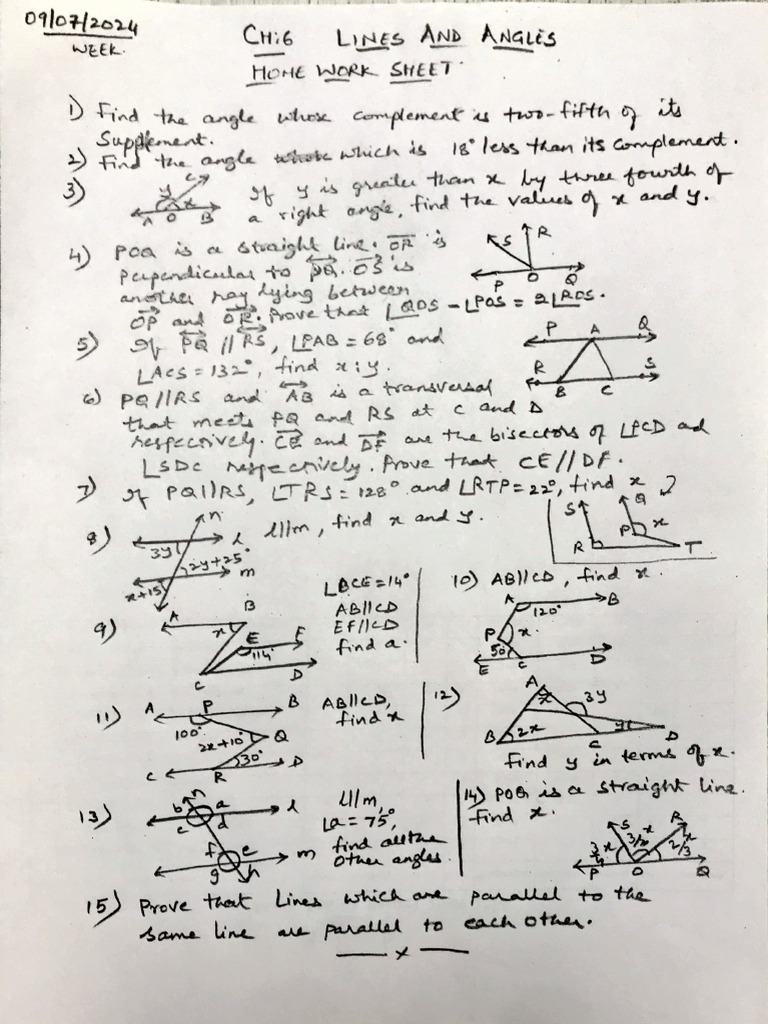 09/07/2024
WEEK.
CH:6 LINES AND ANGLES
HOME WORK SHEET
1) Find the angle whose complement is two-fifth of its
Supplement.
2) Find the angle which is 18° less than its complement.
3) If y is greater than x by three fourth of
a right angle, find the values of x and y.
y C x
A O B
4) POQ is a straight line. OR is
perpendicular to PQ. OS is
another ray lying between
OP and OR. Prove that ∠QOS - ∠POS = 2∠ROS.
S R
P O Q
5) If PQ // RS, ∠PAB = 68° and
∠ACS = 132°, find x : y.
P A Q
R S
B C
6) PQ//RS and AB is a transversal
that meets PQ and RS at C and D
respectively. CE and DF are the bisectors of ∠PCD ad
∠SDC respectively. Prove that CE//DF.
7) If PQ//RS, ∠TRS = 128° and ∠RTP = 22°, find x
S Q
P x
R T
8) l//m, find x and y.
n
l
3y
2y+25°
m
x+15°
9) ∠BCE = 14°
AB//CD
EF//CD
find a.
A B
x E F
114°
C D
10) AB//CD, find x.
A B
120°
P x.
50°
E C D
11) AB//CD,
find x
A P B
100°
2x+10° Q
30°
C R D
12)
A
x 3y
B 2x C y D
Find y in terms of x.
13) l//m,
∠a = 75°,
find all the
other angles.
n
b a l
c d
f e m
g h
14) POQ is a straight line.
Find x.
S R
P O Q
15) Prove that Lines which are parallel to the
same line are parallel to each other.
— x —